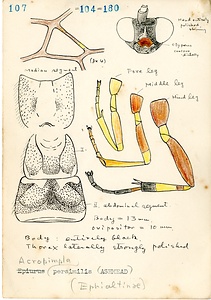 107
-104-180
Head entirely polished, shining
clypeus
median segment
Fore leg
middle leg
Hind leg
1.
2. abdominal segment
Body = 13 mm
ovipositor = 10 mm
Body: entirely black
Thorax laterally strongly polished
Acropimpla
Epiurus (persimilis (ASHMEAD)
(Ephialtinae)